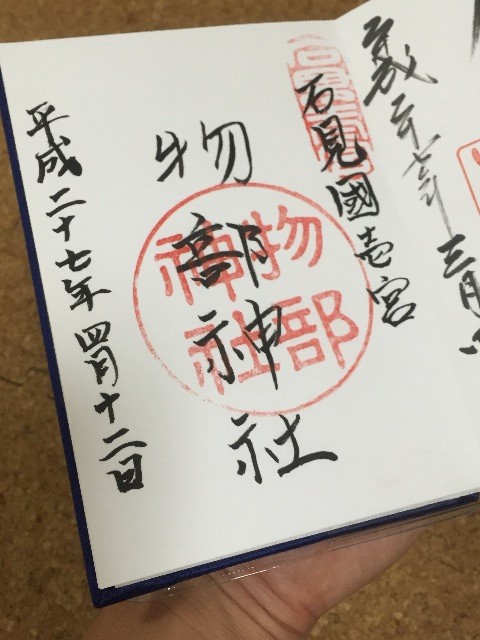 石見國壱宮
物部神社
平成二十七年四月十二日
物部
神社
三月